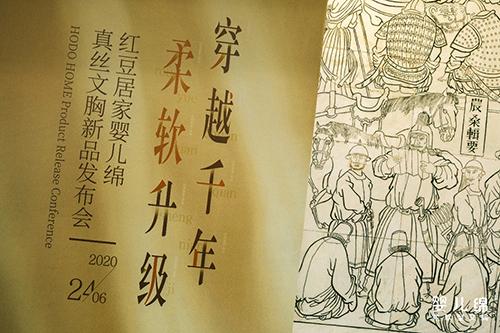 穿越千年
柔软升级
红豆居家婴儿绵
真丝文胸新品发布会
HODO HOME Product Release Conference
2020
24/06
農桑輯要
婴儿绵